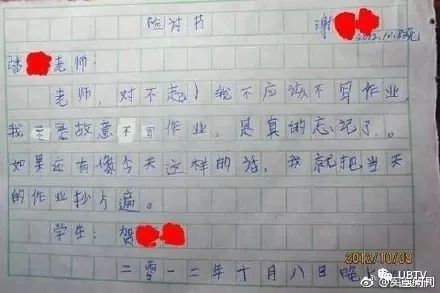 检讨书
谢
2012.10.8晚
老师：
老师，对不起！我不应该不写作业，
我不是故意不写作业，是真的忘记了。
如果还有像今天这样的话，我就把当天
的作业抄 遍。
学生：贺
二零一二年十月八日晚
2012/10/08
UBTV